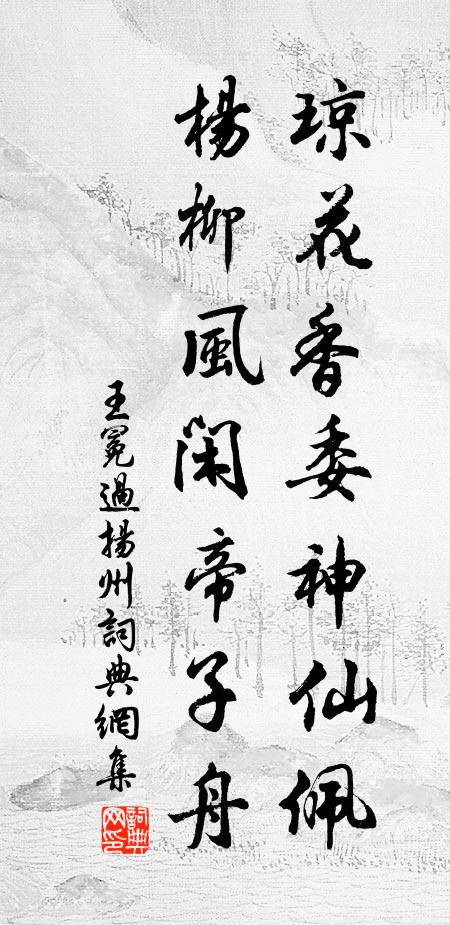 琼花香委神仙佩
楊柳風閑帝子舟
王冕過揚州詞典網集
詞典
网印